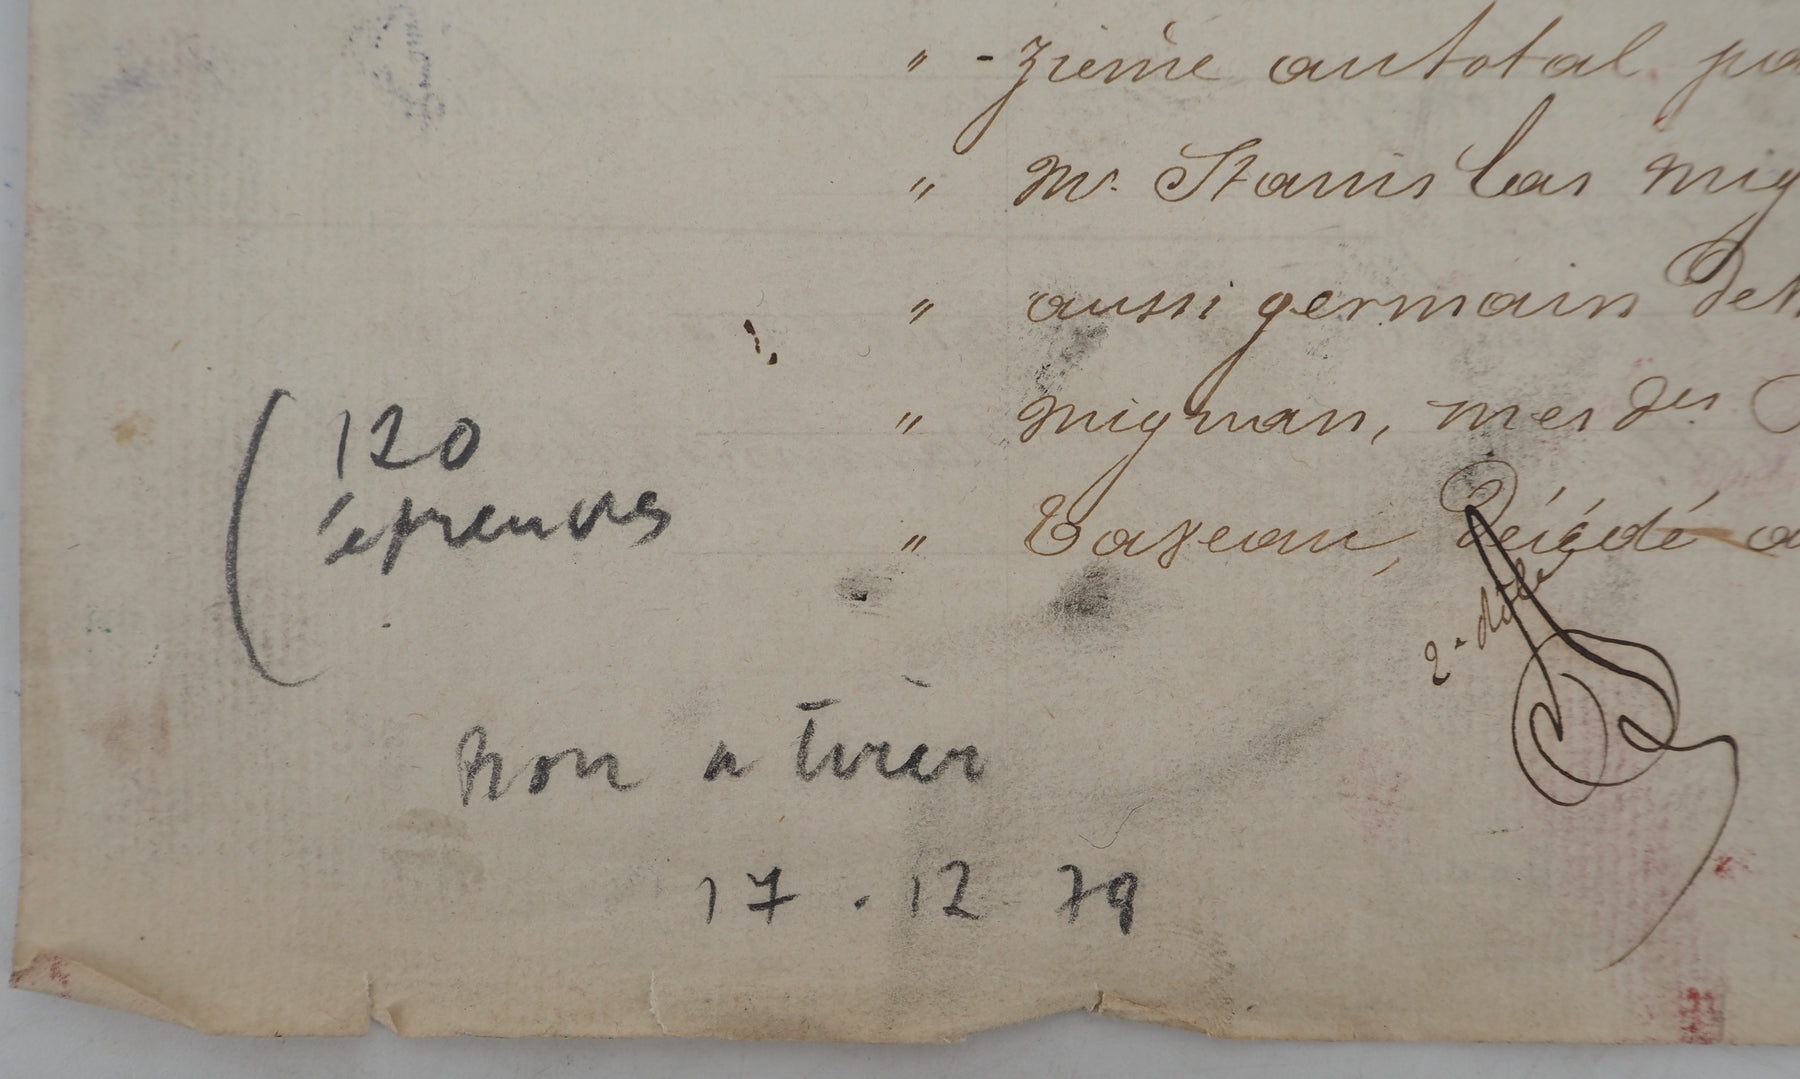 " - zième au total pa
" Mr. Stanislas Mig
" aussi germain de M
" Mignan, mer des
" Bazeau, Décédé a
2e rôle
( 120
épreuves
Bon a tirer
17 . 12 79